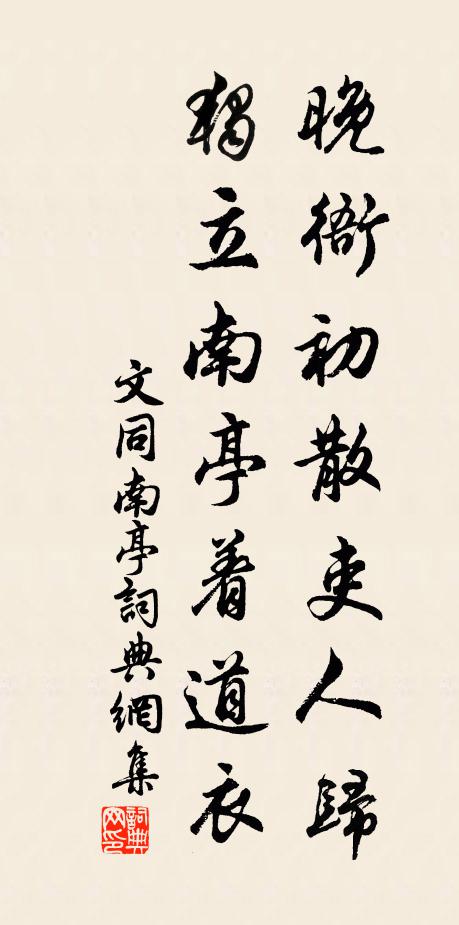 晚衙初散吏人歸
獨立南亭着道衣
文同南亭詞典網集
詞典
网印